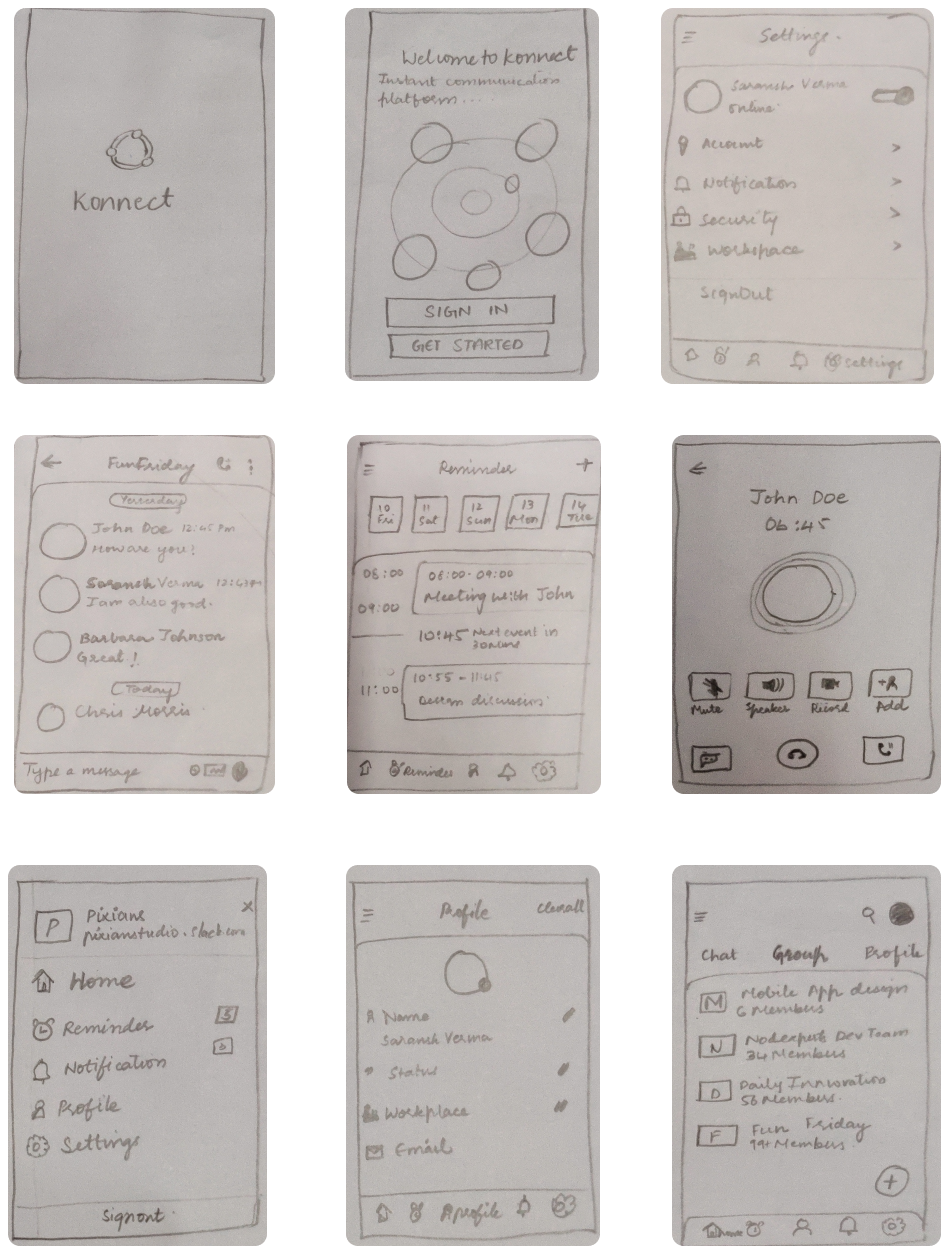 Konnect
Welcome to Konnect
Instant communication
platform....
SIGN IN
GET STARTED
Settings.
Saransh Verma
online
Account >
Notification >
Security >
Workspace >
SignOut
Settings
FunFriday
Yesterday
John Doe 12:45 Pm
How are you!
Saransh Verma 12:43 Pm
I am also good.
Barbara Johnson
Great!
Today
Chris Morris
Type a message
Reminder +
10 Fri
11 Sat
12 Sun
13 Mon
14 Tue
08:00
08:00 - 09:00
Meeting with John
09:00
10:45 Next event in
30 mins
10:55 - 11:45
11:00
discussion
Reminder
John Doe
06:45
Mute Speaker Record Add
P
Pixians
pixianstudio.slack.com
Home
Reminder 5
Notification
Profile
Settings
Signout
Profile
Clear all
Name
Saransh Verma
Status
Workplace
Email
Profile
Chat Group Profile
M Mobile App design
6 Members
N Nodexpert Dev Team
34 Members
D Daily Innovation
56 Members.
F Fun Friday
99+ Members.
+
Home